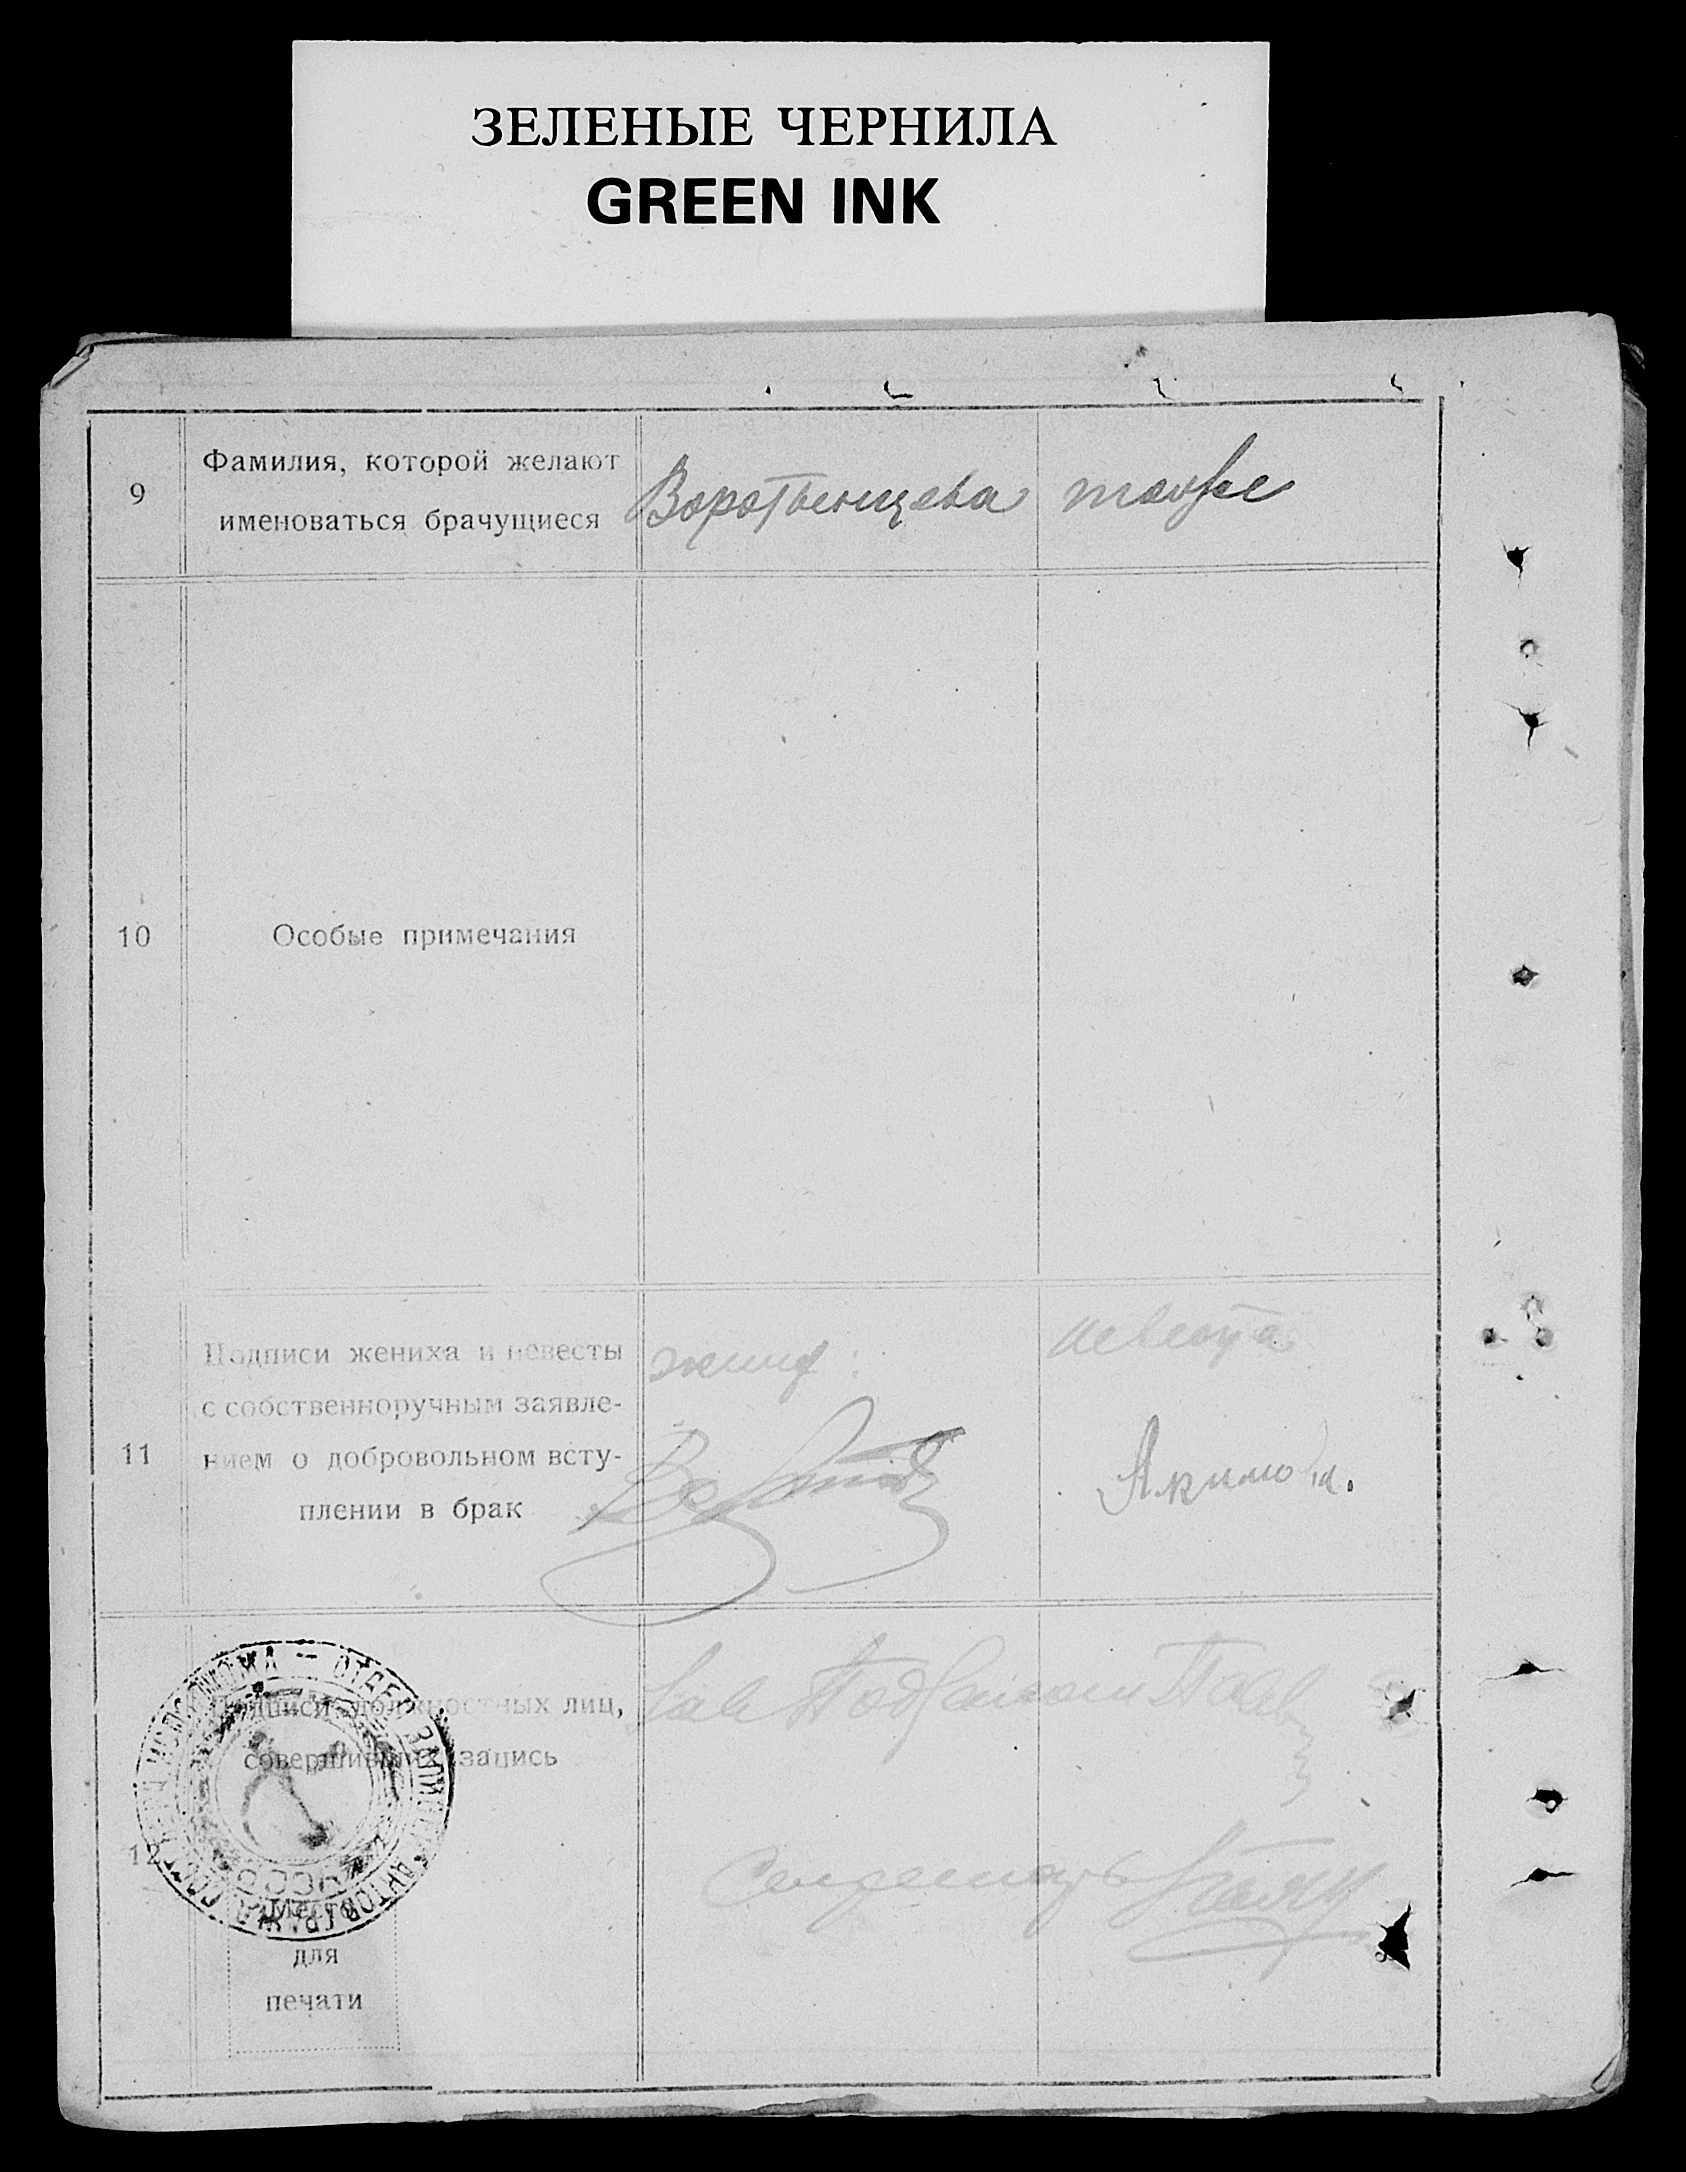 ЗЕЛЕНЫЕ ЧЕРНИЛА
GREEN INK
9
Фамилия, которой желают
именоваться брачущиеся
Воротынцева
тоже
10
Особые примечания
11
Подписи жениха и невесты
с собственноручным заявле-
нием о добровольном всту-
плении в брак
жених:
невеста
Акимова.
12
Подписи должностных лиц,
совершивших запись
Зав
Место
для
печати